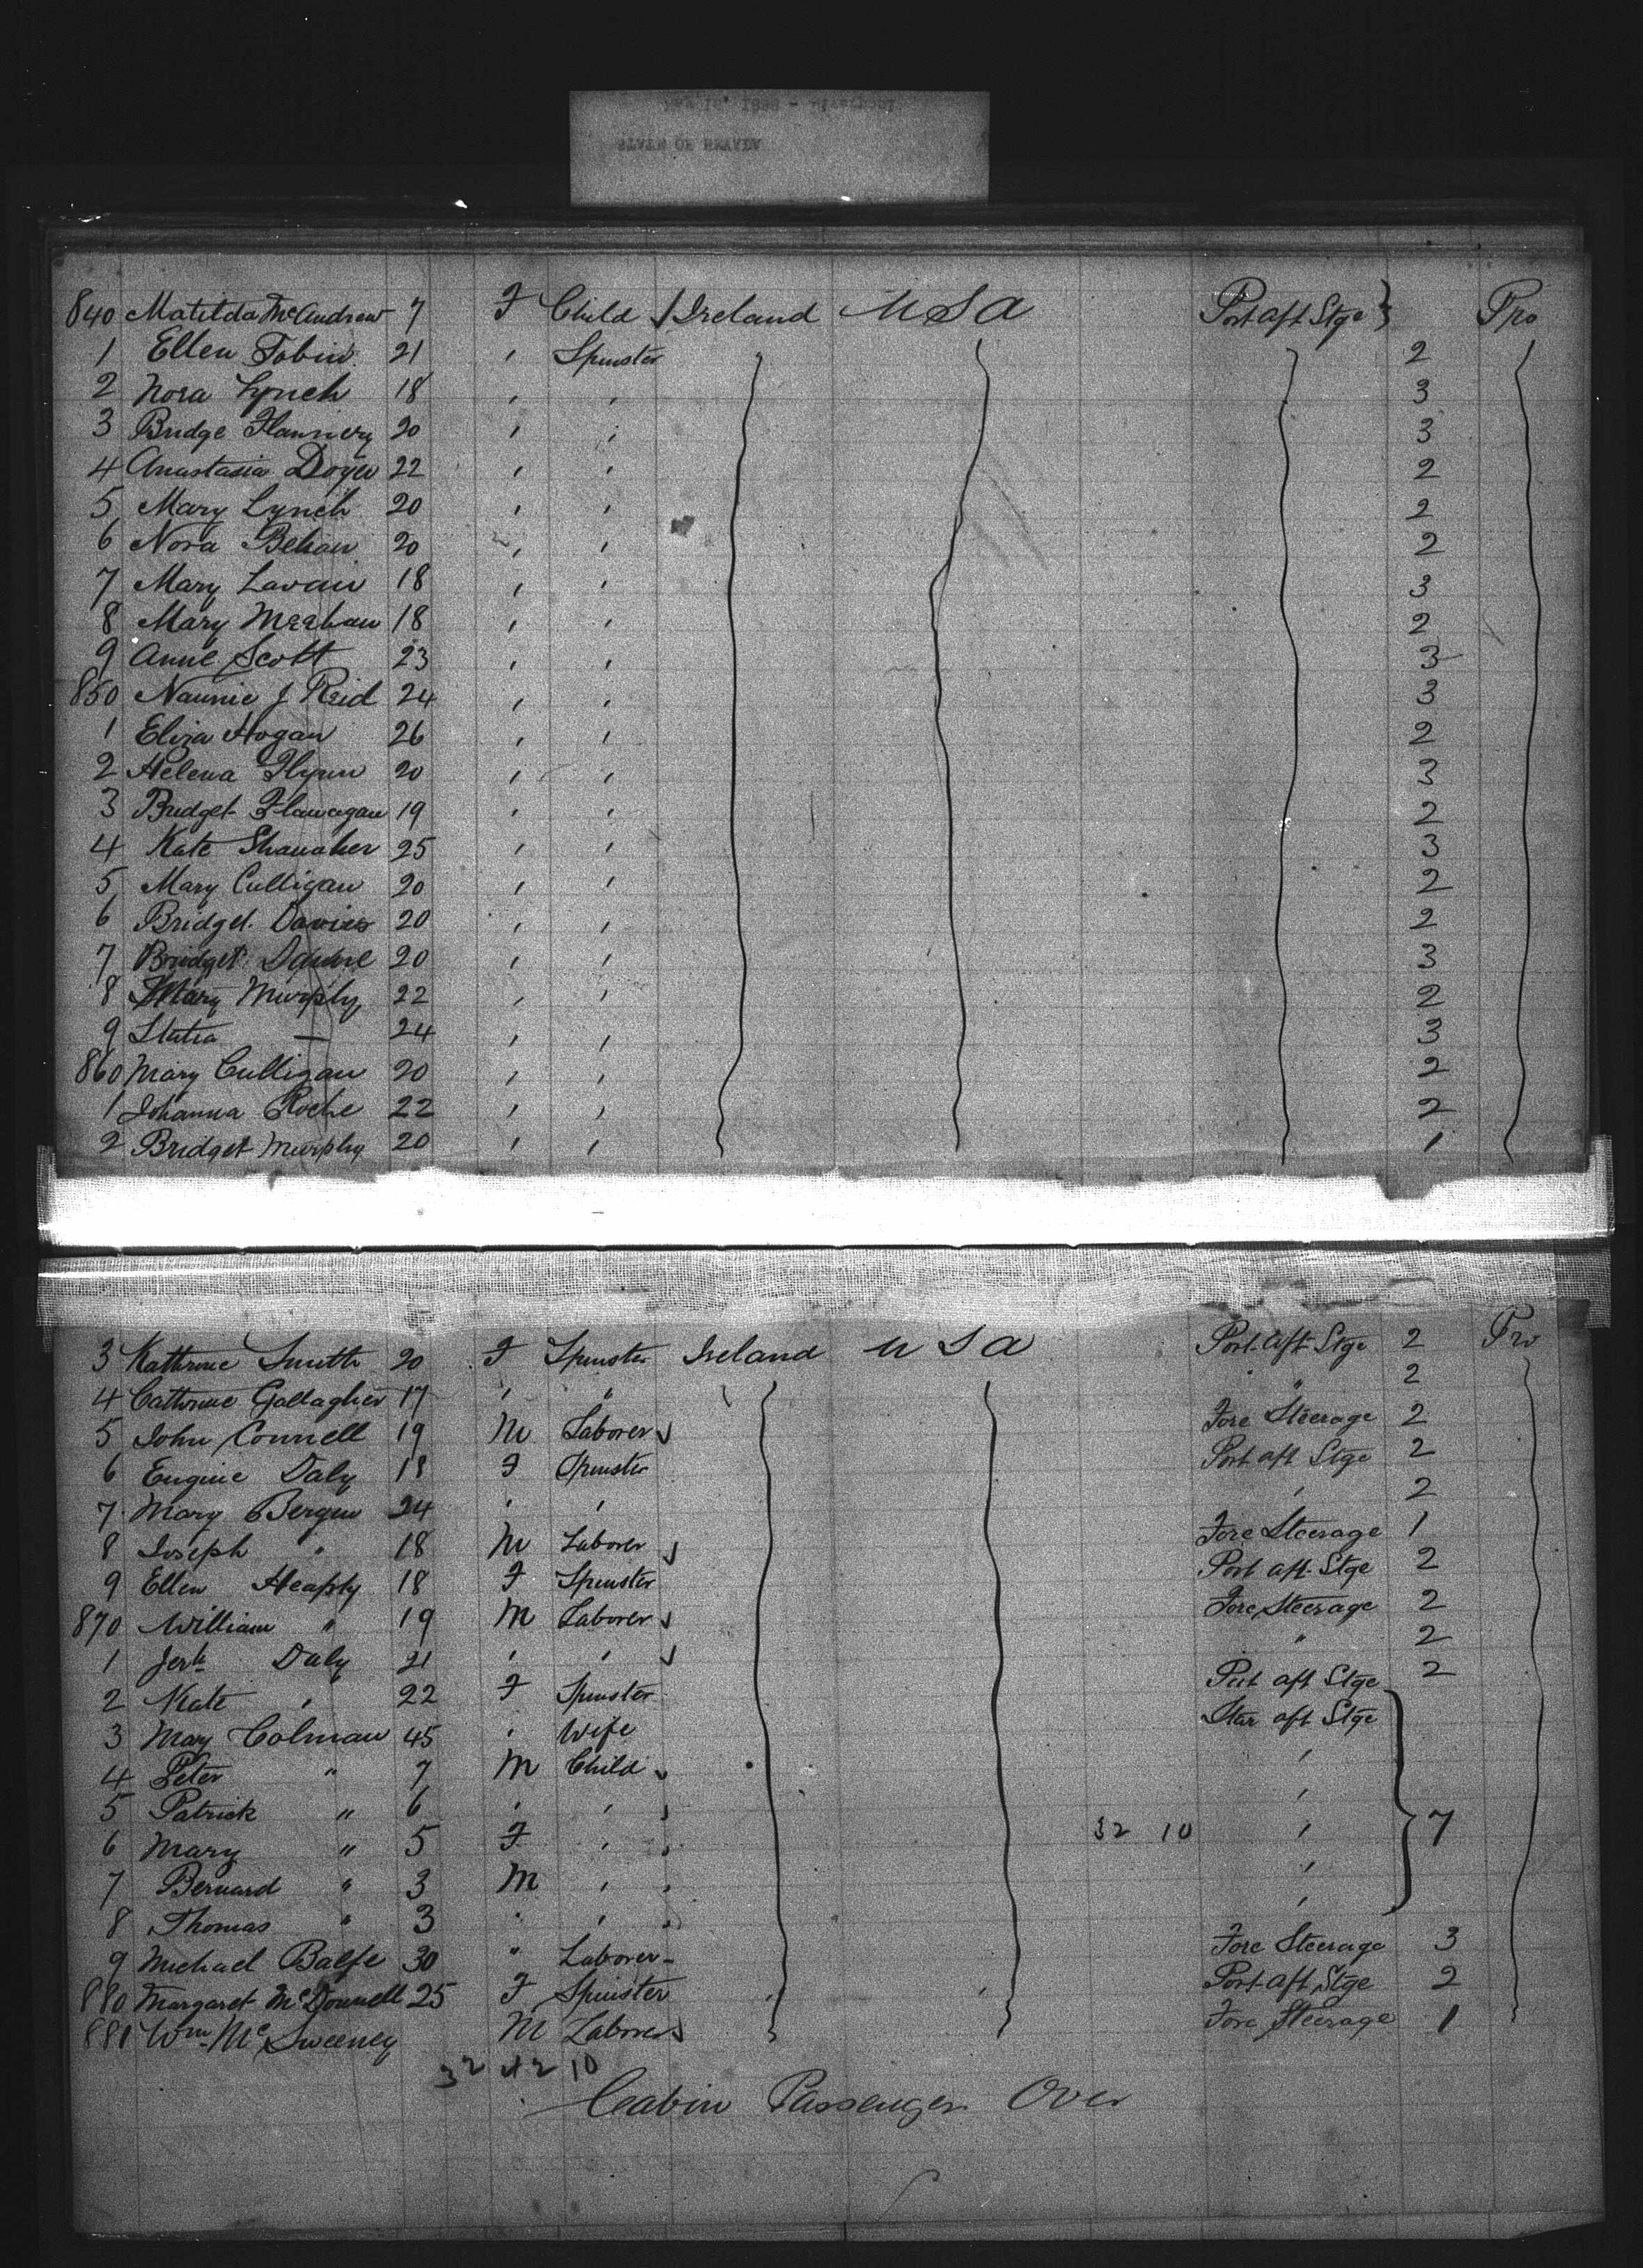 840 Matilda McAndrew 7 F Child Ireland U S A Port aft Stge Pro
1 Ellen Tobin 21 , Spinster 2
2 Nora Lynch 18 , , 3
3 Bridge Flannery 20 , , 3
4 Anastasia 22 , , 2
5 Mary Lynch 20 , , 2
6 Nora Behan 20 , , 2
7 Mary Lavain 18 , , 3
8 Mary Meehan 18 , , 2
9 Anne Scott 23 , , 3
850 Nannie J Reid 24 , , 3
1 Eliza Hogan 26 , , 2
2 Helena Flynn 20 , , 3
3 Bridget Flanagan 19 , , 2
4 Kate Shanaher 25 , , 3
5 Mary Culligan 20 , , 2
6 Bridget Davies 20 , , 2
7 Bridget 20 , , 3
8 Mary Murphy 22 , , 2
9 Statia — 24 , , 3
860 Mary Culligan 20 , , 2
1 Johanna Roche 22 , , 2
2 Bridget Murphy 20 , , 1
3 Kathrine Smith 20 F Spinster Ireland U S A Port aft Stge 2 Pro
4 Cathrine Gallagher 17 , " " 2
5 John Connell 19 M Laborer Fore Steerage 2
6 Eugine Daly 18 F Spinster Port aft Stge 2
7 Mary Bergin 24 , , , 2
8 Joseph " 18 M Laborer Fore Steerage 1
9 Ellen Heaphy 18 F Spinster Port aft Stge 2
870 William " 19 M Laborer Fore Steerage 2
1 Jerh Daly 21 , , " 2
2 Kate , 22 F Spinster Port aft Stge 2
3 Mary Colman 45 , Wife Star aft Stge
4 Peter " 7 M Child ,
5 Patrick " 6 , , ,
6 Mary " 5 F , 32 10 , 7
7 Bernard " 3 M , ,
8 Thomas " 3 " , ,
9 Michael Balfe 30 " Laborer Fore Steerage 3
880 Margaret McDonnell 25 F Spinster Port aft Stge 2
881 Wm McSweeney M Laborer Fore Steerage 1
32 42 10
Cabin Passenger Over